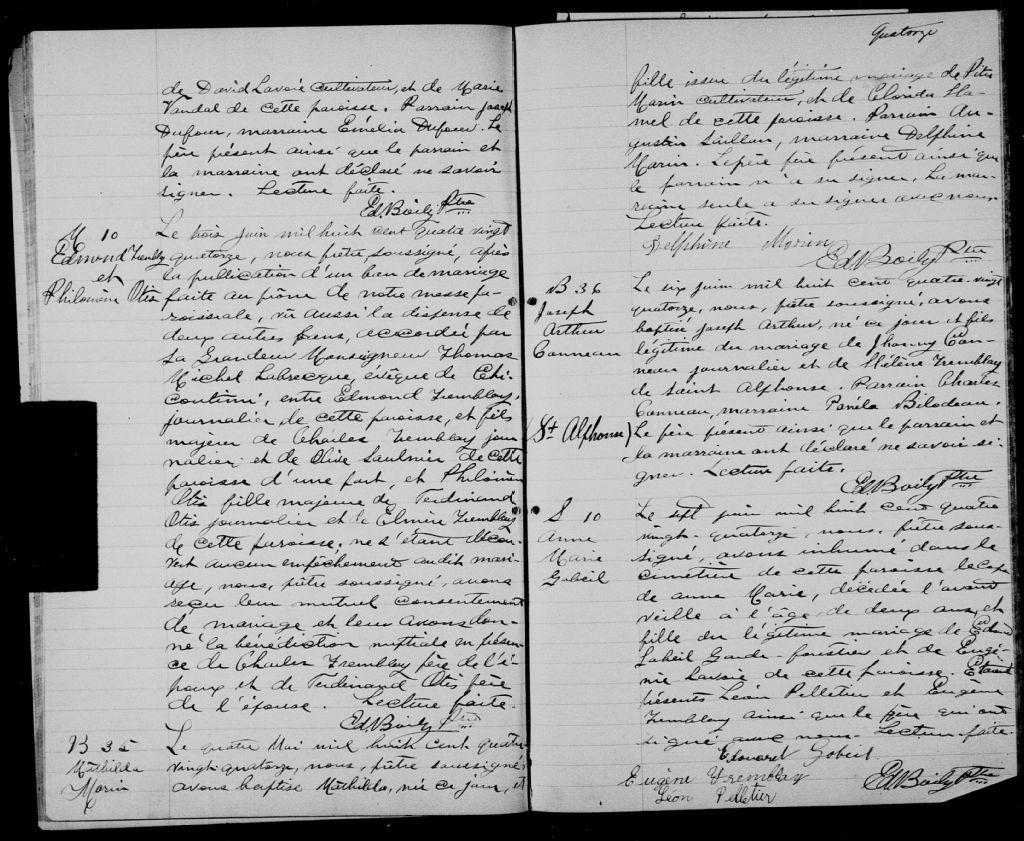 de David Lavoie cultivateur, et de Marie
Vandal de cette paroisse. Parrain Joseph
Dufour, marraine Emélia Dufour. Le
père présent ainsi que le parrain et
la marraine ont déclaré ne savoir
signer. Lecture faite.
Ed. Boily Ptre
M 10
Edmond Trembly
et
Philomène Otis
Le trois juin mil huit cent quatre vingt
quatorze, nous prêtre soussigné, après
la publication d'un ban de mariage
faite au prône de notre messe pa-
roissiale, vu aussi la dispense de
deux autres bans, accordée par
Sa Grandeur Monseigneur Thomas
Michel Labrecque, évêque de Chi-
coutimi, entre Edmond Tremblay,
journalier de cette paroisse, et fils
majeur de Charles Tremblay jour-
nalier et de Olive Saulnier de cette
paroisse d'une part, et Philomène
Otis fille majeure de Ferdinand
Otis journalier et de Elmire Tremblay
de cette paroisse. ne s'étant décou-
vert aucun empêchement au dit mari-
age, nous, prêtre soussigné, avons
reçu leur mutuel consentement
de mariage et leur avons don-
né la bénédiction nuptiale en présen-
ce de Charles Tremblay père de l'é-
poux et de Ferdinand Otis père
de l'épouse. Lecture faite.
Ed. Boily Ptre
B 35
Mathilda
Morin
Le quatre Mai mil huit cent quatre
vingt-quatorze, nous, prêtre soussigné
avons baptisé Mathilda, née ce jour, et
Quatorze
fille issue du légitime mariage de Pitre
Morin cultivateur, et de Clorida Ha-
mel de cette paroisse. Parrain Au-
gustin, marraine Delphine
Morin. Le père présent ainsi que
le parrain n'a su signer, La mar-
raine seule a su signer avec nous.
Lecture faite.
Delphine Morin
Ed Boily Ptre
B 36
Joseph
Arthur
Conneau
(St Alphonse)
Le six juin mil huit cent quatre-vingt
quatorze, nous, prêtre soussigné, avons
baptisé Joseph Arthur, né ce jour et fils
légitime du mariage de Jhonny Con-
neau journalier et de Hélène Tremblay
de Saint Alphonse. Parrain Charles
Conneau, marraine Paméla Bilodeau.
Le père présent ainsi que le parrain et
la marraine ont déclaré ne savoir si-
gner. Lecture faite.
Ed. Boily Ptre
S 10
Anne
Marie
Gobeil
Le sept juin mil huit cent quatre
vingt-quatorze, nous, prêtre sous-
signé, avons inhumé dans le
cimetière de cette paroisse le corps
de Anne Marie, décédée l'avant
veille à l'âge de deux ans, et
fille du légitime mariage de
Gobeil Garde-forestier et de Eugé-
nie Lavoie de cette paroisse. Etaient
présents Léon Pelletier et Eugène
Tremblay ainsi que le père qui ont
signé avec nous. Lecture faite.
Edouard Gobeil
Eugène Tremblay
Léon Pelletier
Ed Boily Ptre